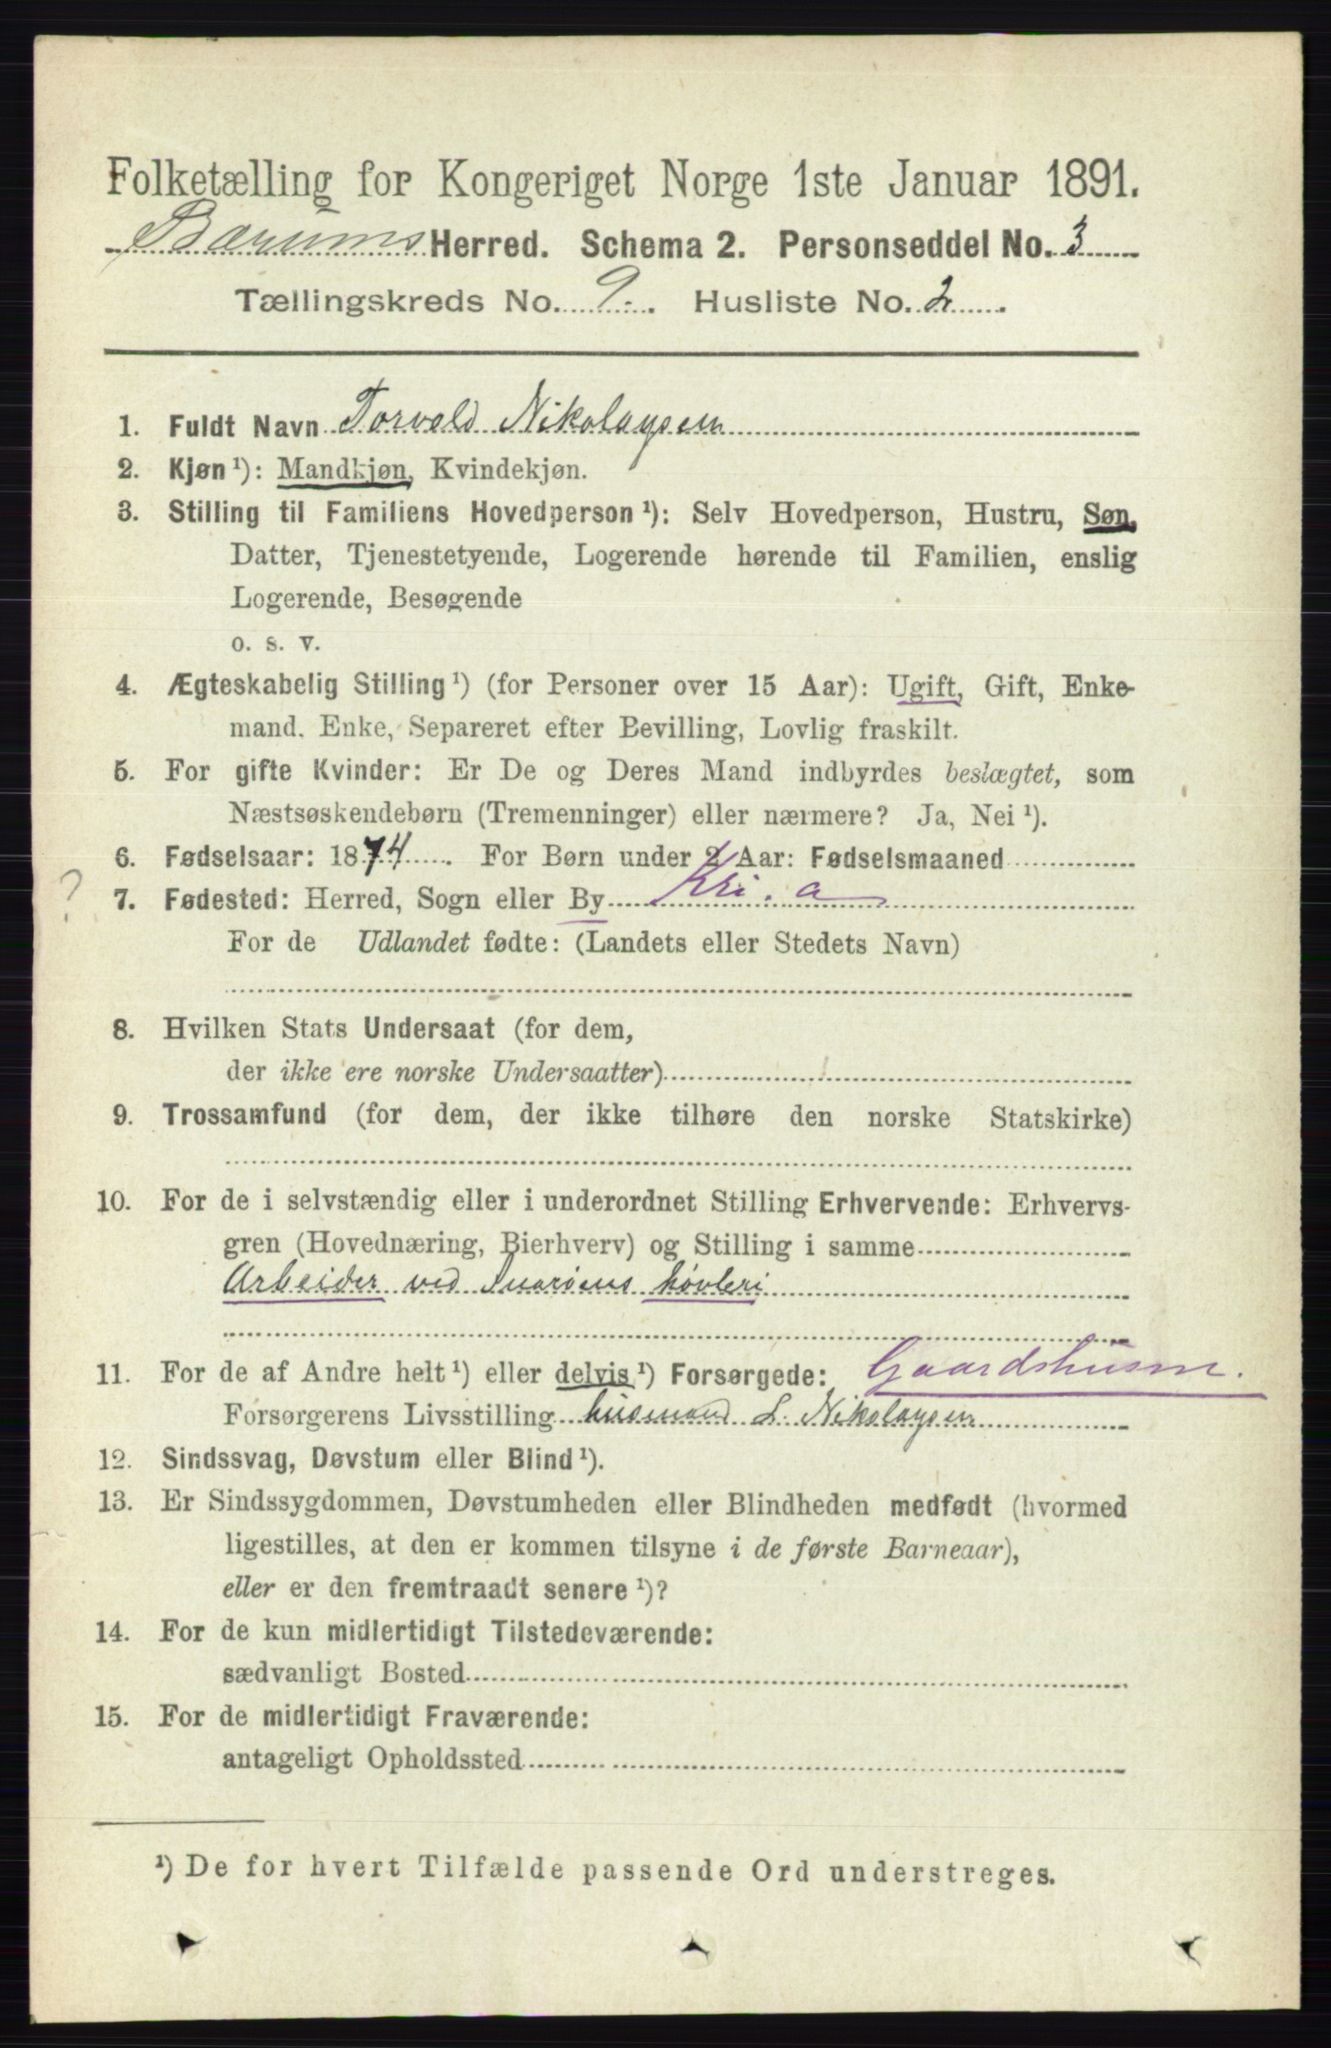 Folketælling for Kongeriget Norge 1ste Januar 1891.
Bærums Herred. Schema 2. Personseddel No. 3
Tællingskreds No. 9. Husliste No. 2
1. Fuldt Navn Torvald Nikolaysen
2. Kjøn ¹): Mandkjøn, Kvindekjøn.
3. Stilling til Familiens Hovedperson ¹): Selv Hovedperson, Hustru, Søn,
Datter, Tjenestetyende, Logerende hørende til Familien, enslig
Logerende, Besøgende
o. s. v.
4. Ægteskabelig Stilling ¹) (for Personer over 15 Aar): Ugift, Gift, Enke-
mand. Enke, Separeret efter Bevilling, Lovlig fraskilt.
5. For gifte Kvinder: Er De og Deres Mand indbyrdes beslægtet, som
Næstsøskendebørn (Tremenninger) eller nærmere? Ja, Nei ¹).
6. Fødselsaar: 1874. For Børn under 2 Aar: Fødselsmaaned
? 7. Fødested: Herred, Sogn eller By Kri.a
For de Udlandet fødte: (Landets eller Stedets Navn)
8. Hvilken Stats Undersaat (for dem,
der ikke ere norske Undersaatter)
9. Trossamfund (for dem, der ikke tilhøre den norske Statskirke)
10. For de i selvstændig eller i underordnet Stilling Erhvervende: Erhvervs-
gren (Hovednæring, Bierhverv) og Stilling i samme
Arbeider ved Snarøens høvleri
11. For de af Andre helt ¹) eller delvis ¹) Forsørgede: Gaardshusm.
Forsørgerens Livsstilling husmand L. Nikolaysen
12. Sindssvag, Døvstum eller Blind ¹).
13. Er Sindssygdommen, Døvstumheden eller Blindheden medfødt (hvormed
ligestilles, at den er kommen tilsyne i de første Barneaar),
eller er den fremtraadt senere ¹)?
14. For de kun midlertidigt Tilstedeværende:
sædvanligt Bosted
15. For de midlertidigt Fraværende:
antageligt Opholdssted
¹) De for hvert Tilfælde passende Ord understreges.